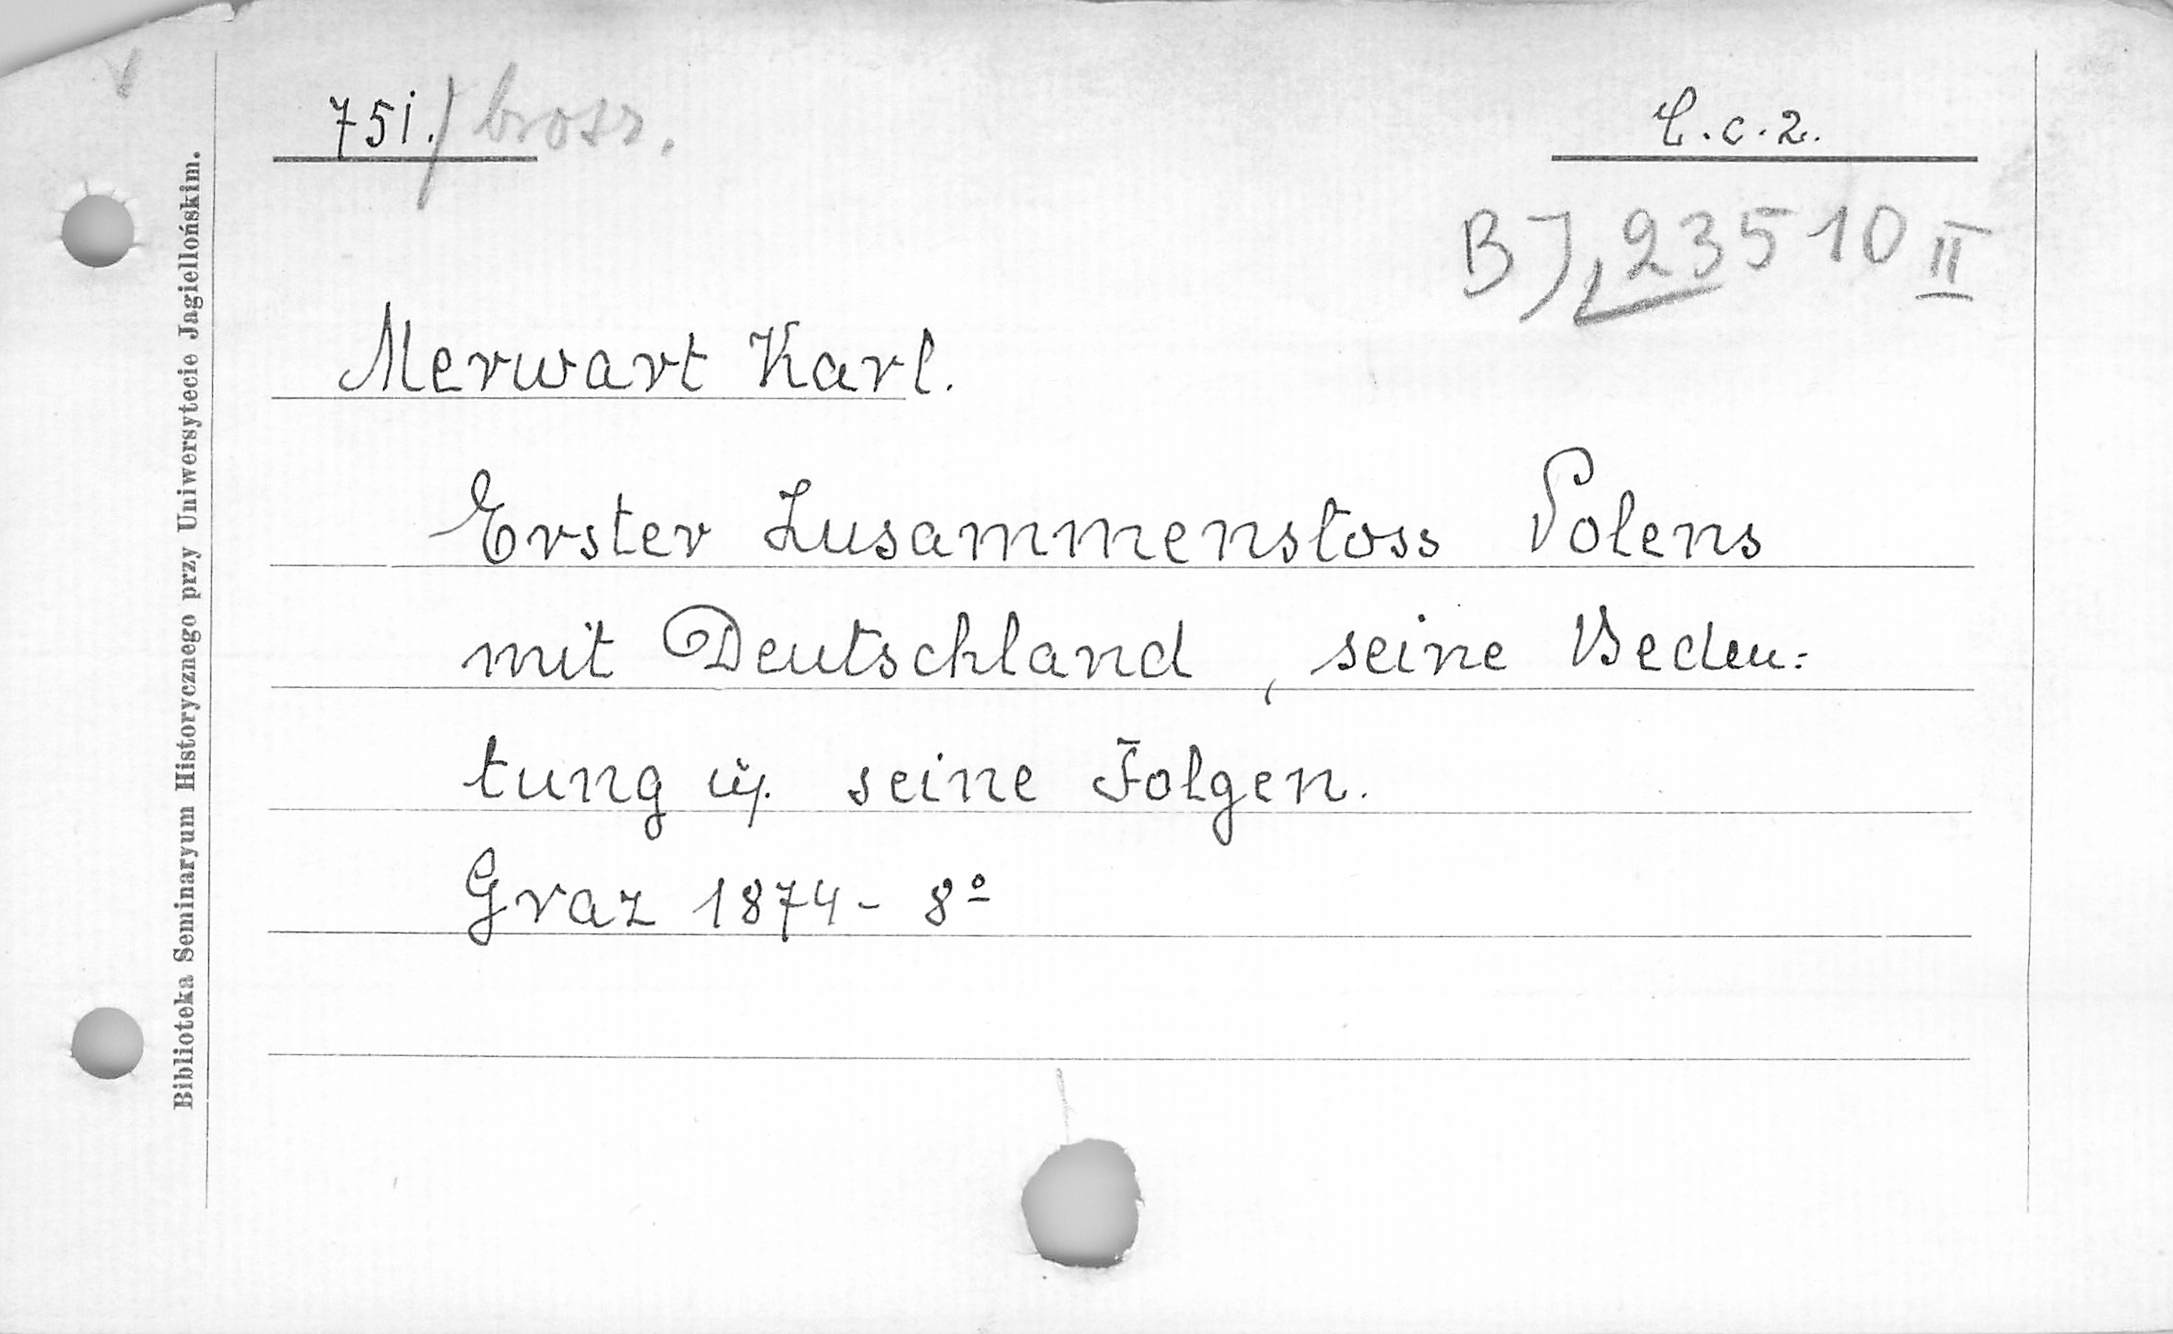 751. / brosz.
C.c.2.
BJ, 23510 II
Merwart Karl.
Erster Zusammenstoss Polens
mit Deutschland, seine Bedeu:
tung u. seine Folgen.
Graz 1874 - 8º
Biblioteka Seminaryum Historycznego przy Uniwersytecie Jagiellońskim.